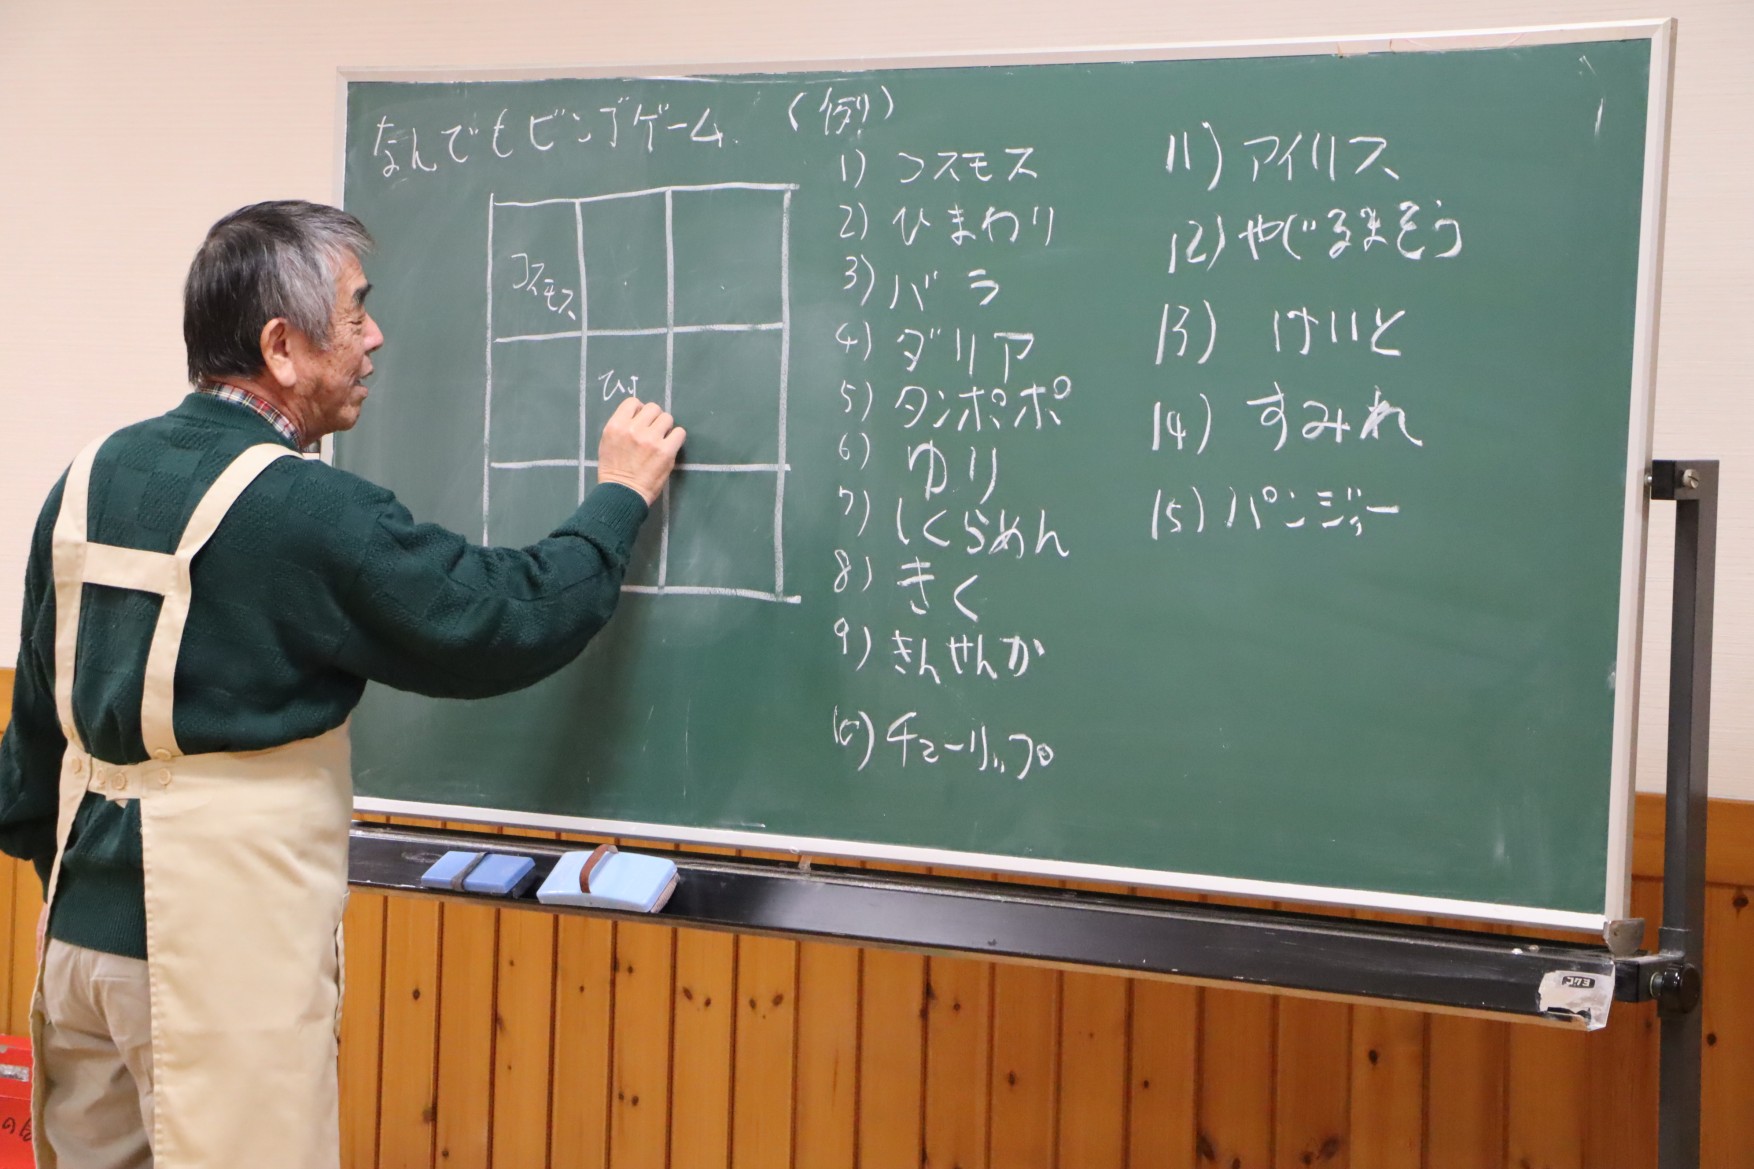 なんでもビンゴゲーム (例)
コスモス
ひま
1) コスモス
2) ひまわり
3) バラ
4) ダリア
5) タンポポ
6) ゆり
7) しくらめん
8) きく
9) きんせんか
10) チューリップ
11) アイリス
12) やぐるまそう
13) けいと
14) すみれ
15) パンジー